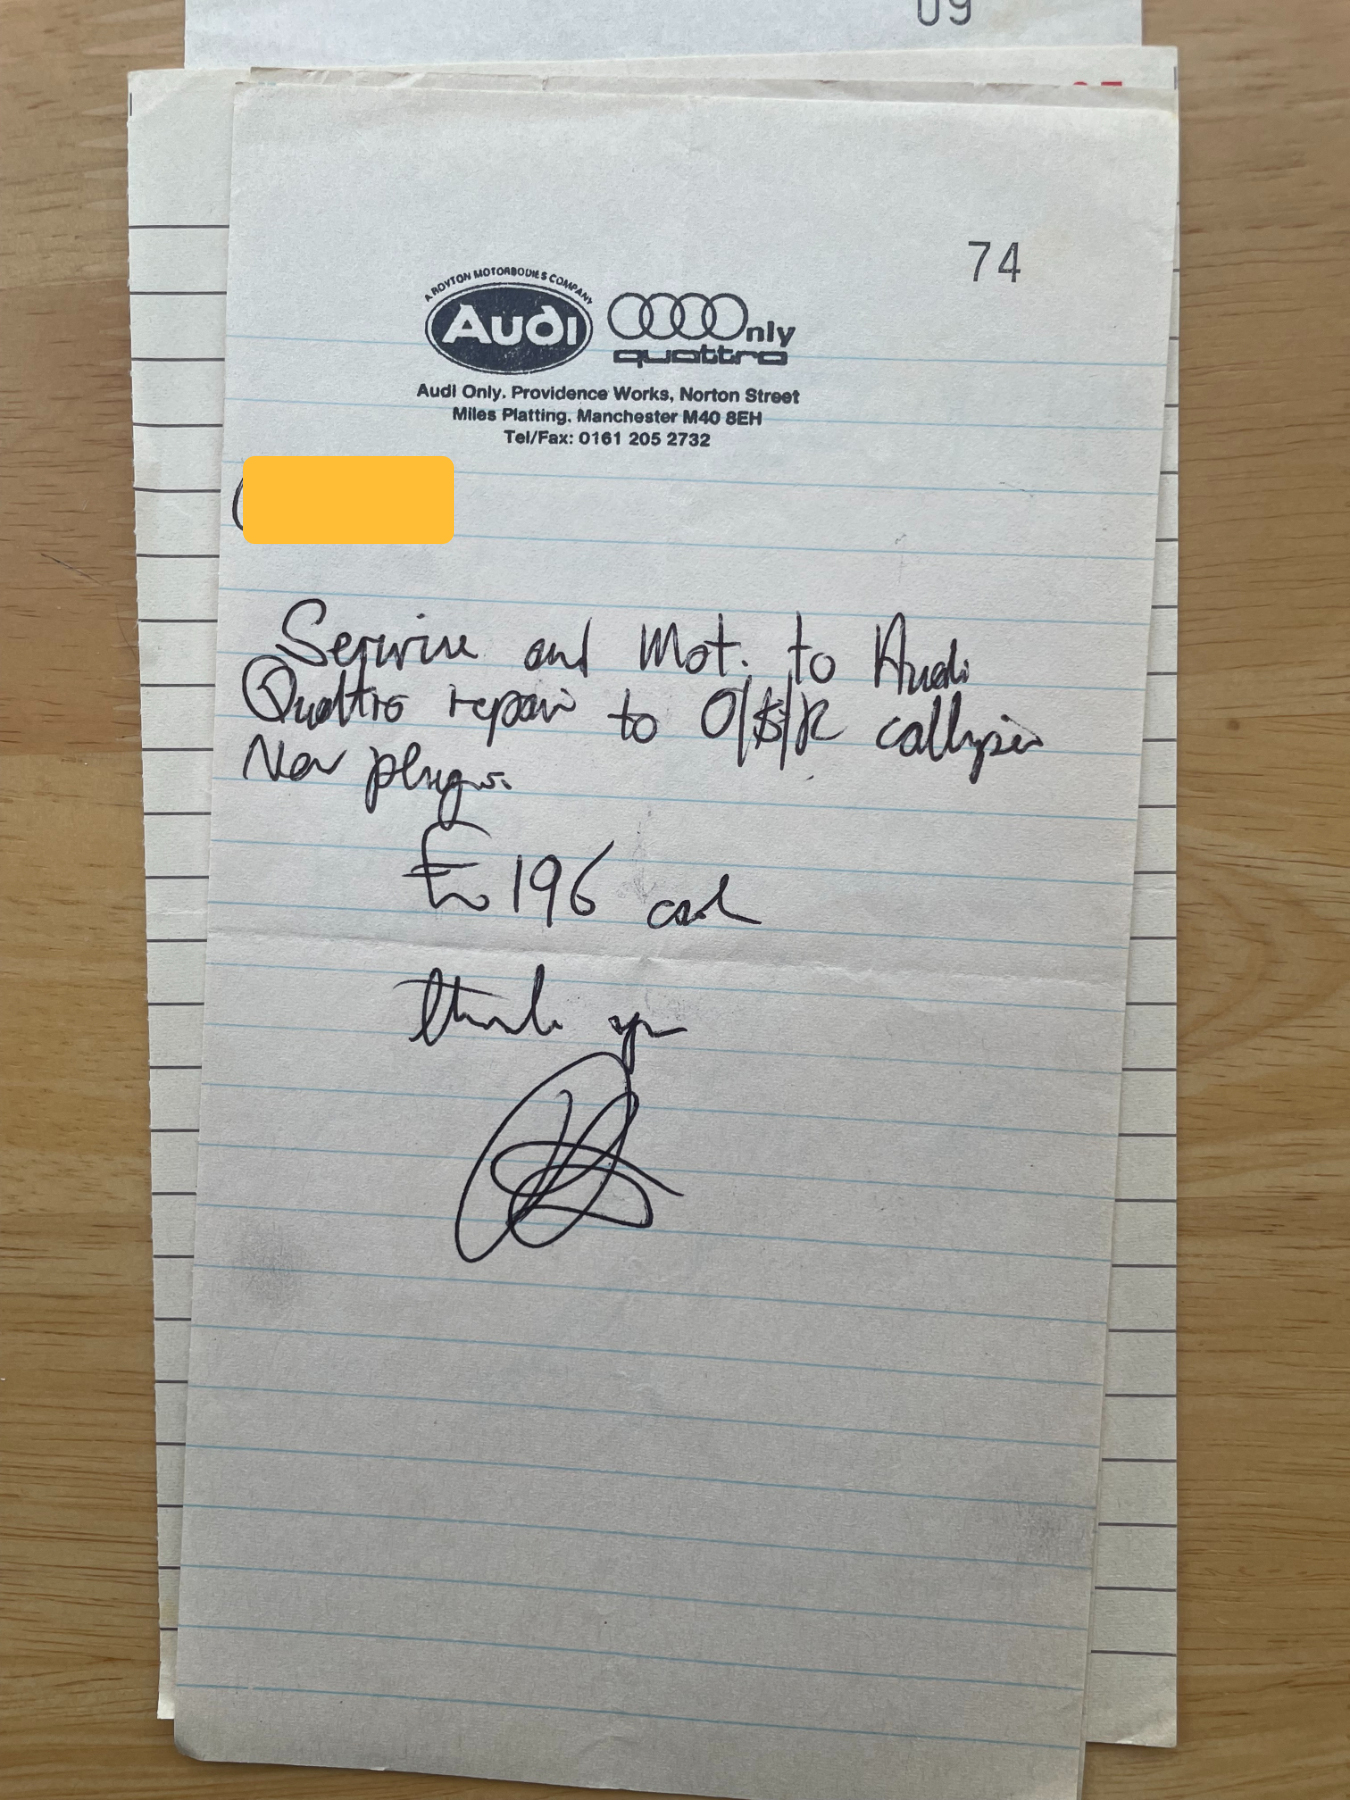 09
74
A ROYTON MOTORBODIES COMPANY
Audi
Only
quattro
Audi Only, Providence Works, Norton Street
Miles Platting, Manchester M40 8EH
Tel/Fax: 0161 205 2732
Service and Mot. to Audi
Quattro repair to O/S/R callyper
New plugs.
£ 196 cash
thank you